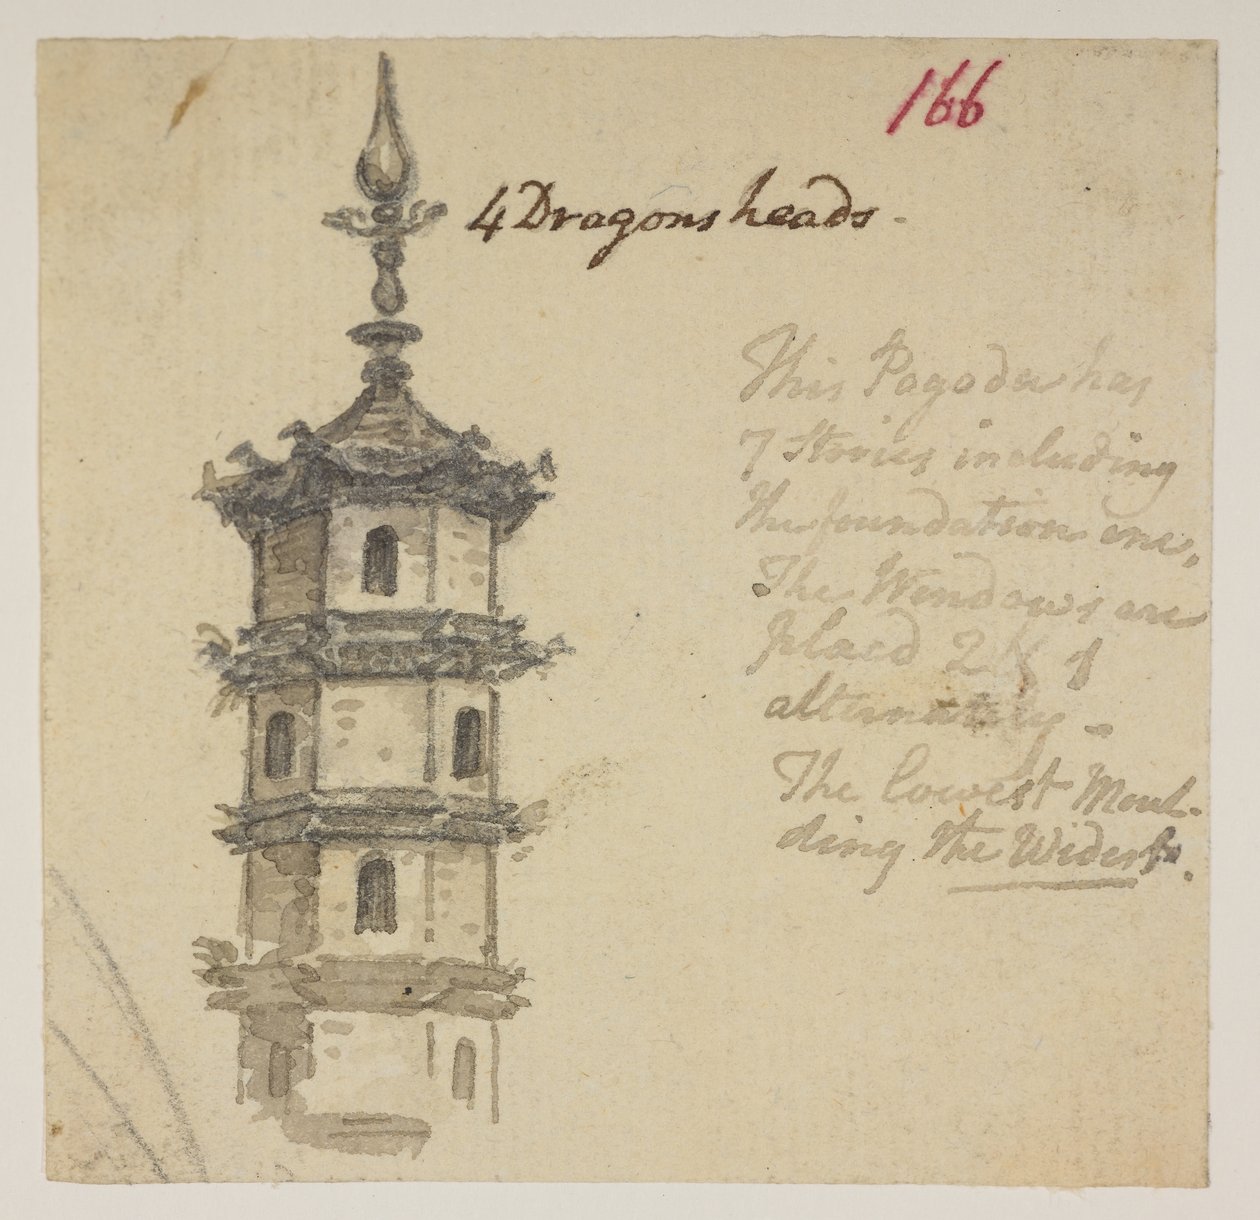 166
4 Dragons heads.
This Pagoda has
7 Stories including
the foundation one.
The Windows are
placed 2 & 1
alternately -
The lowest Moul-
ding the Widest.